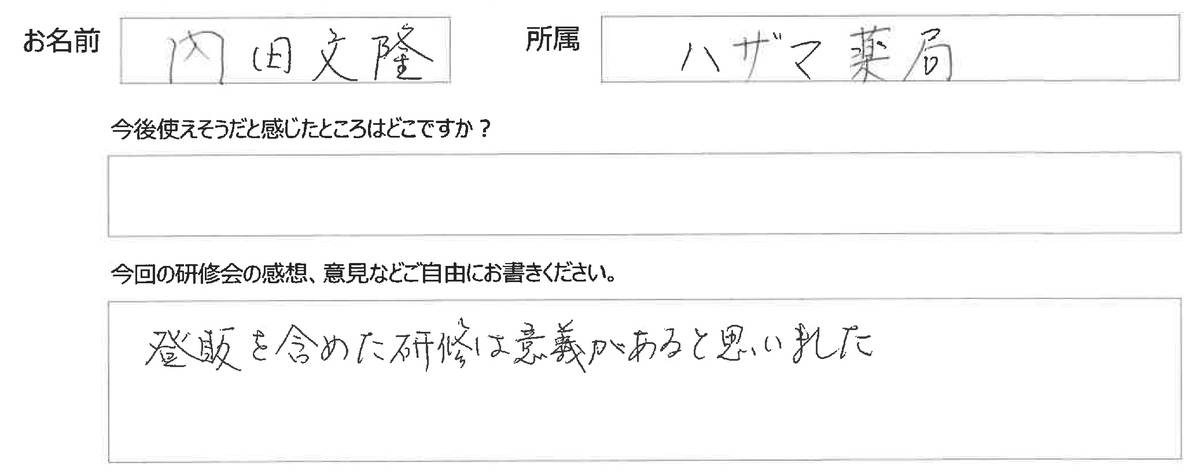 お名前 内田文隆 所属 ハザマ薬局
今後使えそうだと感じたところはどこですか？
今回の研修会の感想、意見などご自由にお書きください。
登販を含めた研修は意義があると思いました